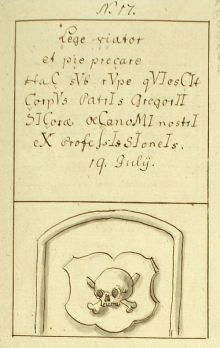 N. 17.
Lege viator
et pie precare
HaC sVb rVpe qVIesCIt
CorpVs PatrIs GregorII
SICora œConoMI nostrI
eX
19. Julij.